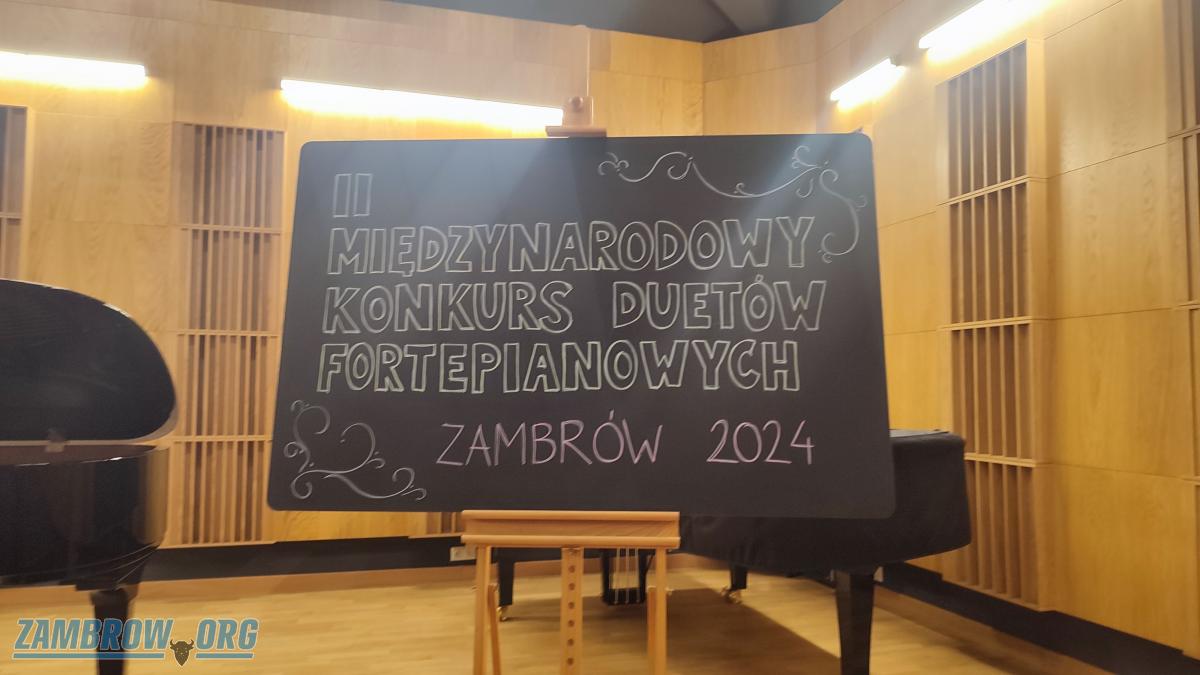 II
MIĘDZYNARODOWY
KONKURS DUETÓW
FORTEPIANOWYCH
ZAMBRÓW 2024
ZAMBROW.ORG